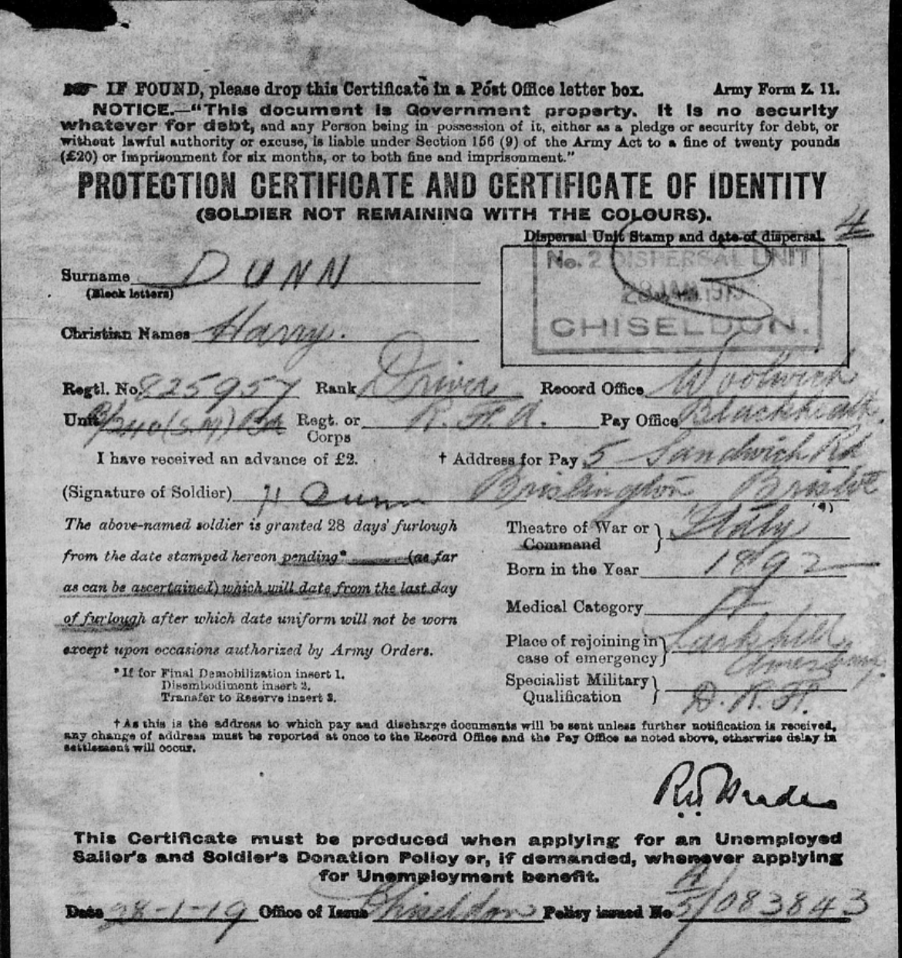 IF FOUND, please drop this Certificate in a Post Office letter box. Army Form Z. 11.
NOTICE.—"This document is Government property. It is no security
whatever for debt, and any Person being in possession of it, either as a pledge or security for debt, or
without lawful authority or excuse, is liable under Section 156 (9) of the Army Act to a fine of twenty pounds
(£20) or imprisonment for six months, or to both fine and imprisonment."
PROTECTION CERTIFICATE AND CERTIFICATE OF IDENTITY
(SOLDIER NOT REMAINING WITH THE COLOURS).
Dispersal Unit Stamp and date of dispersal. 4
No. 2 DISPERSAL UNIT
28 JAN 1919
CHISELDON.
Surname DUNN
(Block letters)
Christian Names Harry.
Regtl. No. 825957 Rank Driver Record Office Woolwich
Unit Regt. or Corps R.F.A. Pay Office Blackheath.
I have received an advance of £2. † Address for Pay 5 Sandwich Rd
(Signature of Soldier) H Dunn Brislington Bristol
The above-named soldier is granted 28 days' furlough
from the date stamped hereon pending* (as far
as can be ascertained) which will date from the last day
of furlough after which date uniform will not be worn
except upon occasions authorized by Army Orders.
*If for Final Demobilization insert 1.
Disembodiment insert 2.
Transfer to Reserve insert 3.
Theatre of War or Command Italy
Born in the Year 1892
Medical Category A
Place of rejoining in case of emergency Larkhill Amesbury.
Specialist Military Qualification
†As this is the address to which pay and discharge documents will be sent unless further notification is received,
any change of address must be reported at once to the Record Office and the Pay Office as noted above, otherwise delay in
settlement will occur.
This Certificate must be produced when applying for an Unemployed
Sailor's and Soldier's Donation Policy or, if demanded, whenever applying
for Unemployment benefit.
Date 28-1-19 Office of Issue Chiseldon Policy issued No A/5/083843